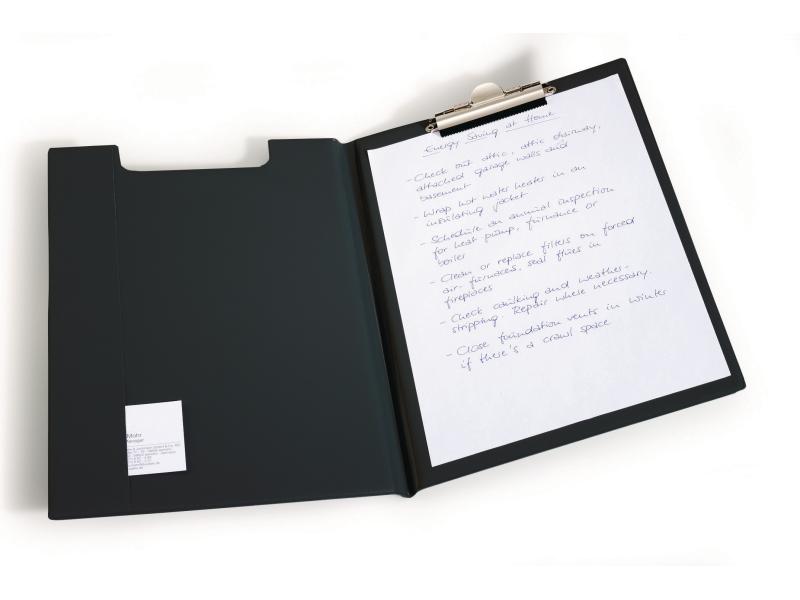 Energy Saving at Home
- Check out attic, attic stairway,
attached garage walls and
basement
- Wrap hot water heater in an
insulating jacket
- Schedule an annual inspection
for heat pump, furnance or
boiler
- Clean or replace filters on forced
air-furnaces, seal flues in
fireplaces
- Check caulking and weather-
stripping. Repair where necessary.
- Close foundation vents in winter
if there's a crawl space
Mohr